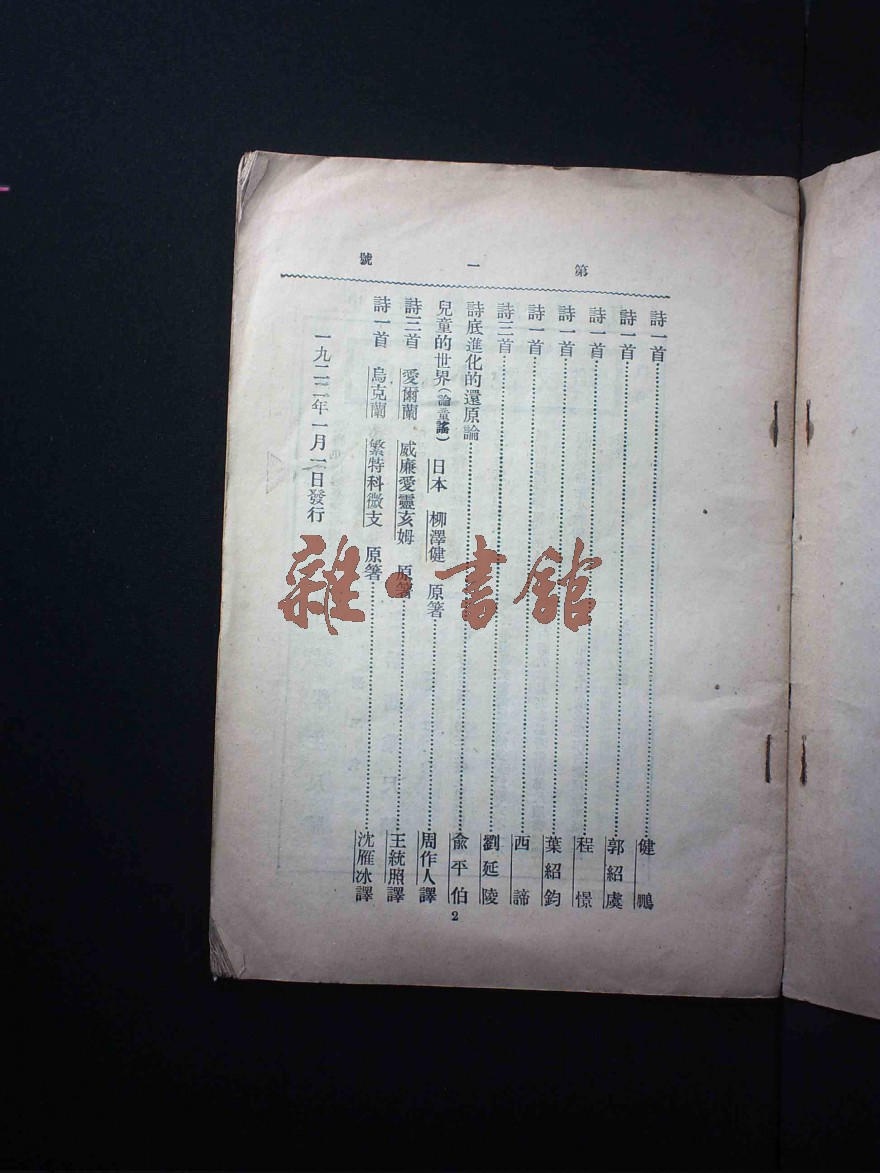 第一號
詩一首……健鵬
詩一首……郭紹虞
詩一首……程憬
詩一首……葉紹鈞
詩一首……西諦
詩三首……劉延陵
詩底進化的還原論……俞平伯
兒童的世界(論童謠) 日本 柳澤健 原箸……周作人譯
詩三首 愛爾蘭 威廉愛靈亥姆 原箸……王統照譯
詩一首 烏克蘭 繁特科微支 原箸……沈雁冰譯
一九二二年一月一日發行
2
雜·書館